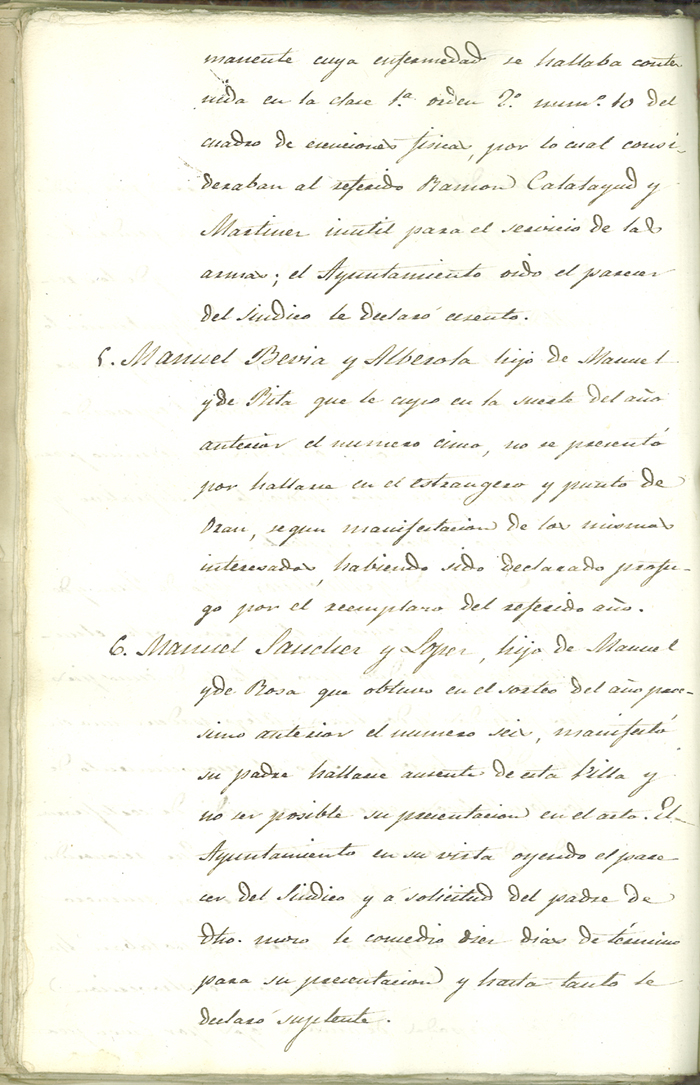 manente cuya enfermedad se hallaba conte-
nida en la clase 1.ª orden 2.º num.º 10 del
cuadro de esenciones fisicas, por lo cual consi-
deraban al referido Ramon Calatayud y
Martinez inutil para el servicio de las
armas; el Ayuntamiento oido el parecer
del Sindico le declaró esento.
5. Manuel Bevia y Alberola hijo de Manuel
y de Rita que le cupo en la suerte del año
anterior el numero cinco, no se presentó
por hallarse en el estrangero y punto de
Oran, segun manifestacion de los mismos
interesados, habiendo sido declarado profu-
go por el reemplazo del referido año.
6. Manuel Sanchez y Lopez, hijo de Manuel
y de Rosa que obtuvo en el sorteo del año proc-
simo anterior el numero seis, manifestó
su padre hallarse ausente de esta Villa y
no ser posible su presentacion en el acto. El
Ayuntamiento en su vista oyendo el pare-
cer del Sindico y a solicitud del padre de
dho. mozo le concedio diez dias de término
para su presentacion y hasta tanto le
declaró suplente.